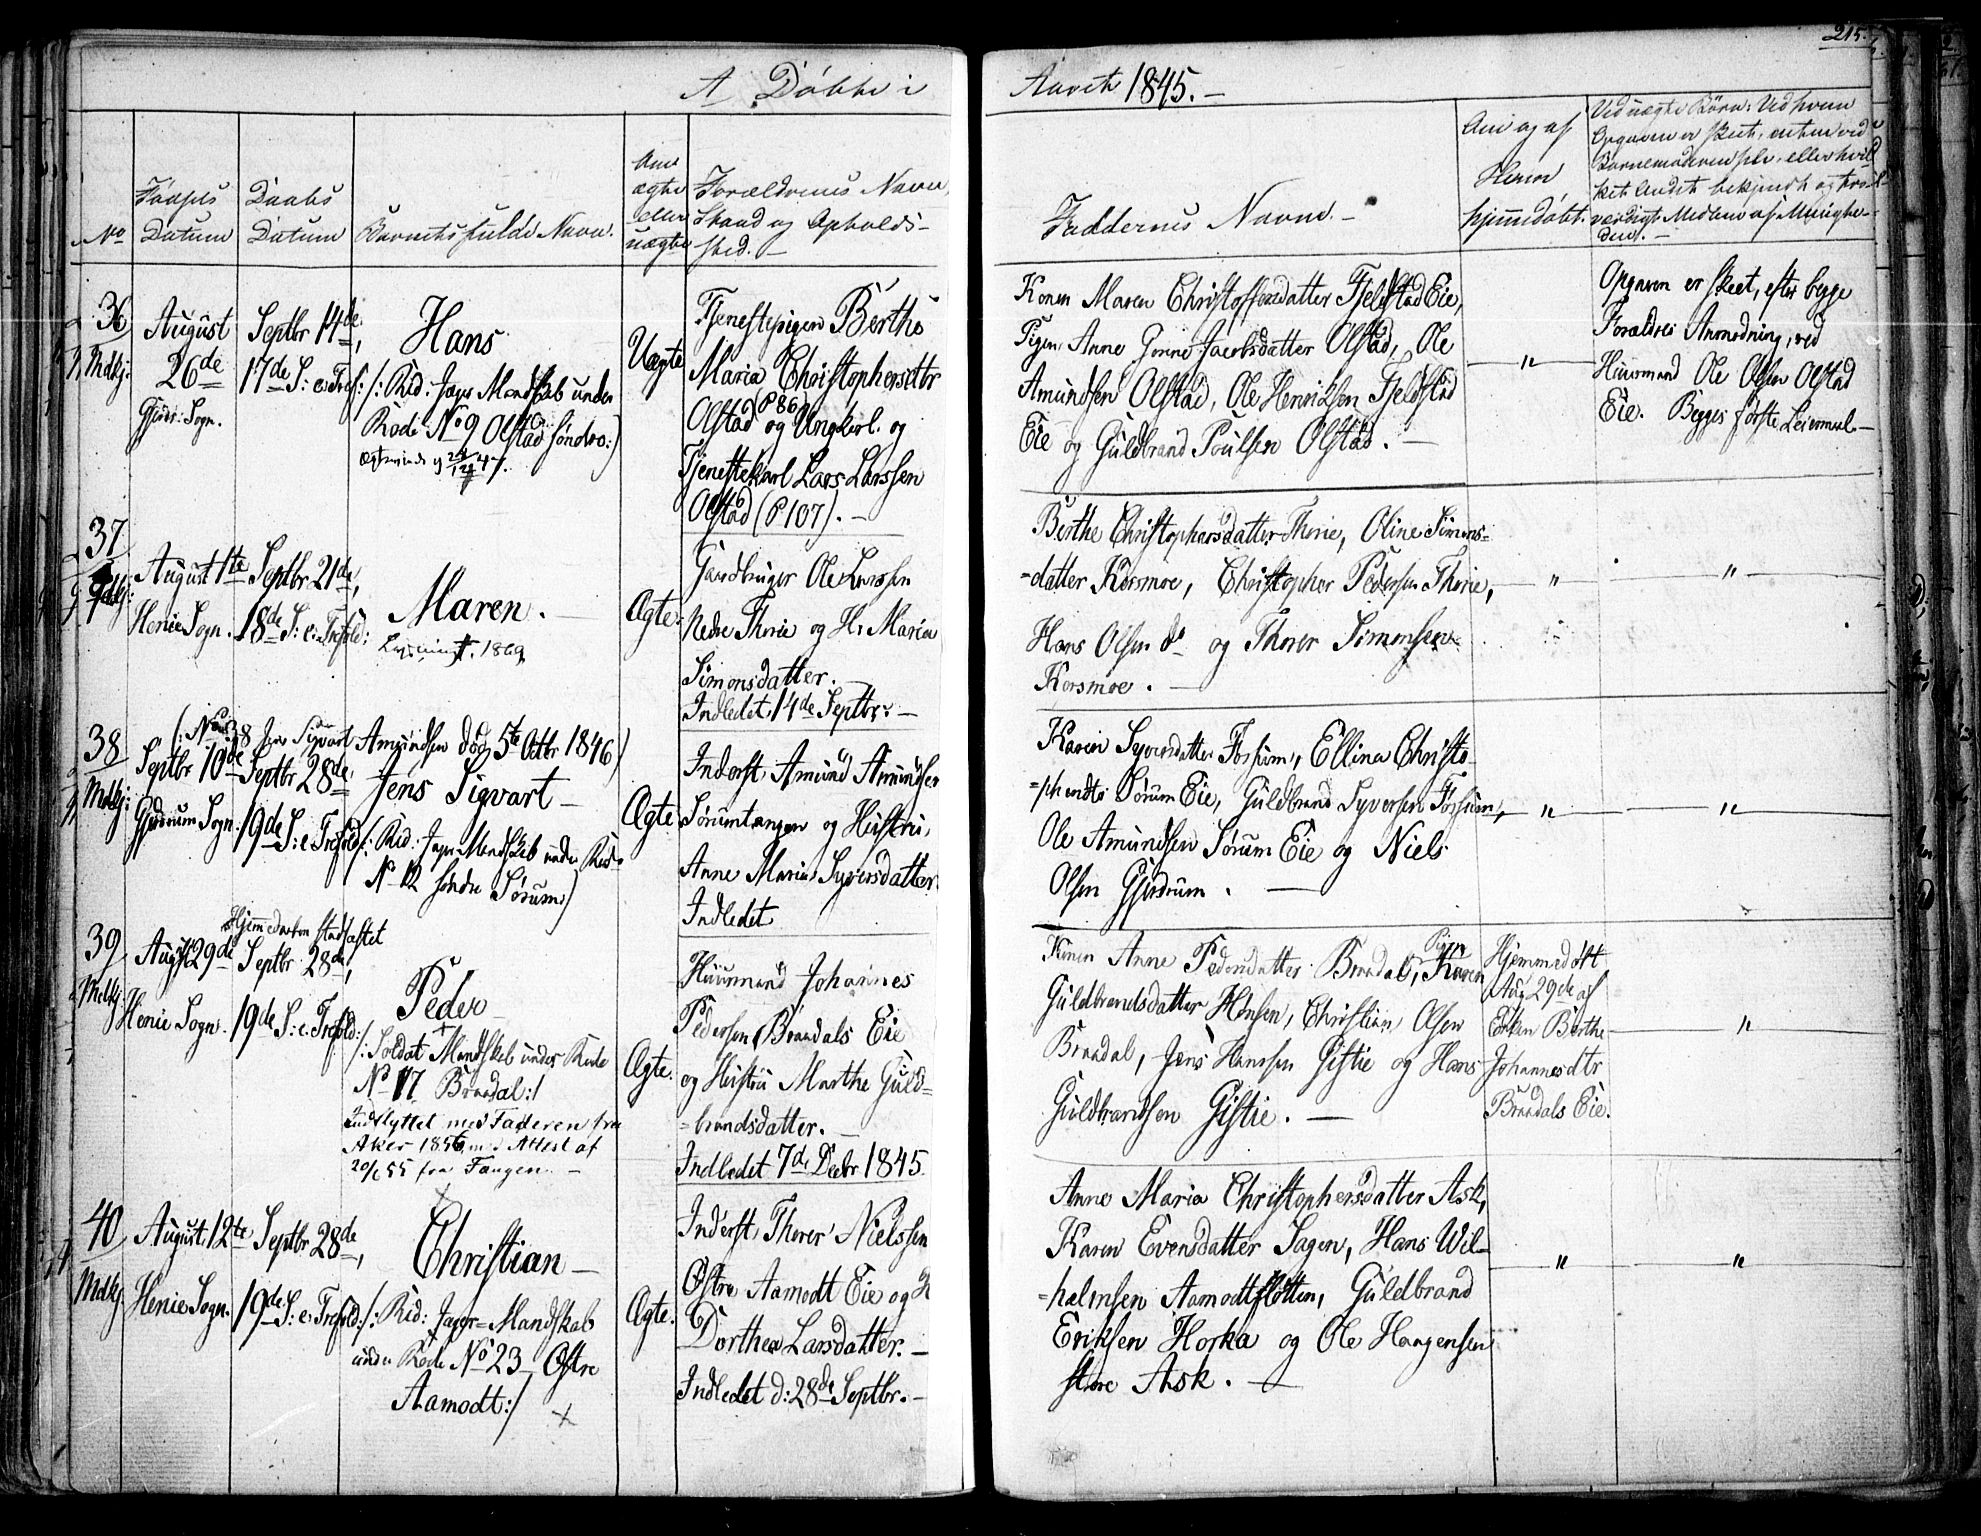 215.
A Döbte i Aaret 1845.—
No
Födsels Datum
Daabs Datum
Barnets fulde Navn.
Om ægte eller uægte
Forældrenes Navn, Stand og Opholds-
sted.—
Faddernes Navne.—
Om og af
Hvem
hjemmedöbt.
Ved uægte Börn: Ved hvem
Opgaven er skeet, enten ved
Barnemoderen selv, eller hvil-
ket Medlem af Menighe-
den.—
36
Mdkj:
August
26de
Gjerdr: Sogn.
Septbr 14de,
17de S: e: Tref:
Hans
/: Rid: Jæger Mandskab under
Rode No 9 Olstad söndre:)
Uægte
Tjenestepigen Berthe
Maria Christophersdtr
Olstad (P 86) og Ungkarl og
Tjenestekarl Lars Larssen
Olstad (P 107).—
Konen Maren Christoffersdatter Fjeldstad Eie,
Pigen Anne Jacobsdatter Olstad, Ole
Amundsen Olstad, Ole Henriksen Fjeldstad
Eie og Guldbrand Poulsen Olstad.—
"
Opgaven er skeet, efter begge
Forældres Anmodning, ved
Huusmand Ole Olsen Olstad
Eie. Begges förste Leiermaal.—
37
August 1te
Henie Sogn.
Septbr 21de,
18de S: e: Trefold:
Maren.—
1869
Ægte.
Gaardbruger Ole Larssen
Nedre Thorie og H: Maria
Simonsdatter.—
Indledet 14de Septbr.—
Berthe Christophersdatter Thorie, Oline Simons-
=datter Korsmoe, Christopher Pedersen Thorie,
Hans Olsen do og Thorer Simonsen
Korsmoe.—
"
"
38
Mdkj:
(: No 38 Jens Sigvart Amundsen död 5te Octbr 1846)
Septbr 10de
Gjerdrum Sogn.
Septbr 28de,
19de S: e: Trefold:
Jens Sigvart—
/: Rid: Jæger Mandskab under Rode
No 12 söndre Sörum)
Ægte
Inderst Amund Amundsen
Sörumtangen og Hustru,
Anne Maria Syversdatter.
Indledet
Karen Syversdatter Fossum, Ellina Christo-
=phersdtr Sörum Eie, Guldbrand Syversen Fossum,
Ole Amundsen Sörum Eie og Niels
Olsen Gjerdrum.—
"
"
39
Mdkj:
Hjemmedaaben stadfæstet
August 29de
Henie Sogn.
Septbr 28de,
19de S: e: Trefold:
Peder
/: Soldat Mandskab under Rode
No 17 Braadal:/
Indflyttet med Faderen fra
Aker 1856 m. Attest af
20/6 55 fra Fangen.—
Ægte.
Huusmand Johannes
Pedersen Braadals Eie
og Hustru Marthe Guld-
=brandsdatter.—
Indledet 7de Decbr 1845.
Konen Anne Pedersdatter Braadal, Pigen Karen
Guldbrandsdatter Hönsen, Christian Olsen
Braadal, Jens Hanssen Gistie og Hans
Guldbrandsen Gistie.—
Hjemmedöbt
Aug 29de af
Enken Berthe
Johannesdtr
Braadals Eie.
"
40
Mdkj
August 12te
Henie Sogn.
Septbr 28de,
19de S: e: Trefold:
Christian—
/: Rid: Jæger=Mandskab
under Rode No 23— Östre
Aamodt:/
Ægte.
Inderst Thorer Nielssen
Östre Aamodt Eie og H
Dorthea Larsdatter.—
Indledet d: 28de Septbr.—
Anne Maria Christophersdatter Ask,
Karen Evensdatter Sagen, Hans Wil-
=halmsen Aamodtslötten, Guldbrand
Eriksen Horka og Ole Haagensen
store Ask.—
"
"